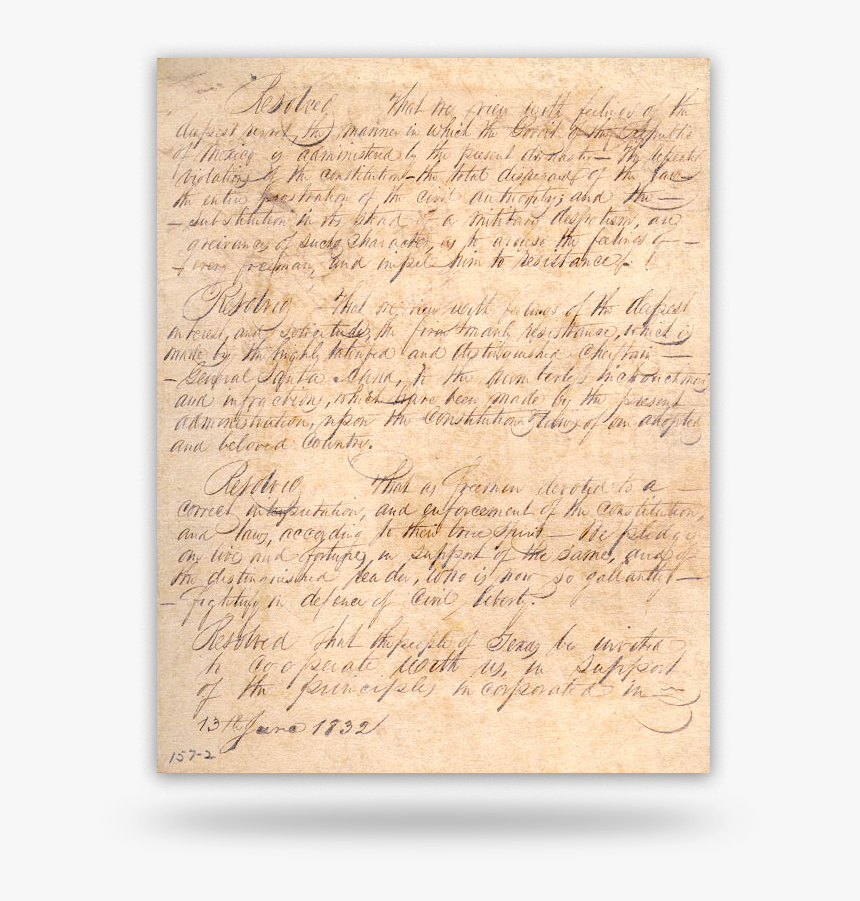 Resolved That we view with feelings of the
deepest regret, the manner in which the Govmt of the republic
of Mexico is administered by the present dinasty — The repeated
violations of the constitution — the total disregard of the laws —
the entire prostration of the civil authority; and the —
— substitution in its stead of a military despotism, are
greivances of such character, as to arouse the feelings of —
— every freeman, and impel him to resistance —
Resolved That we view with feelings of the deepest
interest, and solicitude, the firm & manly resistance, which is
made by the highly talented and distinguished Cheiftain —
— General Santa Anna, to the numberless incrouchments
and infractions, which have been made by the present
administration, upon the Constitution & laws of our adopted
and beloved Country.
Resolved That as Freemen devoted to a —
correct interpretation, and enforcement of the Constitution,
and laws, according to their true Spirit — We pledge
our lives and fortunes in support of the same, and of
the distinguished leader, who is now so gallantly —
— Fighting in defence of Civil liberty.
Resolved That the people of Texas be invited
to cooperate with us, in support
of the principles incorporated in
13th June 1832
157-2